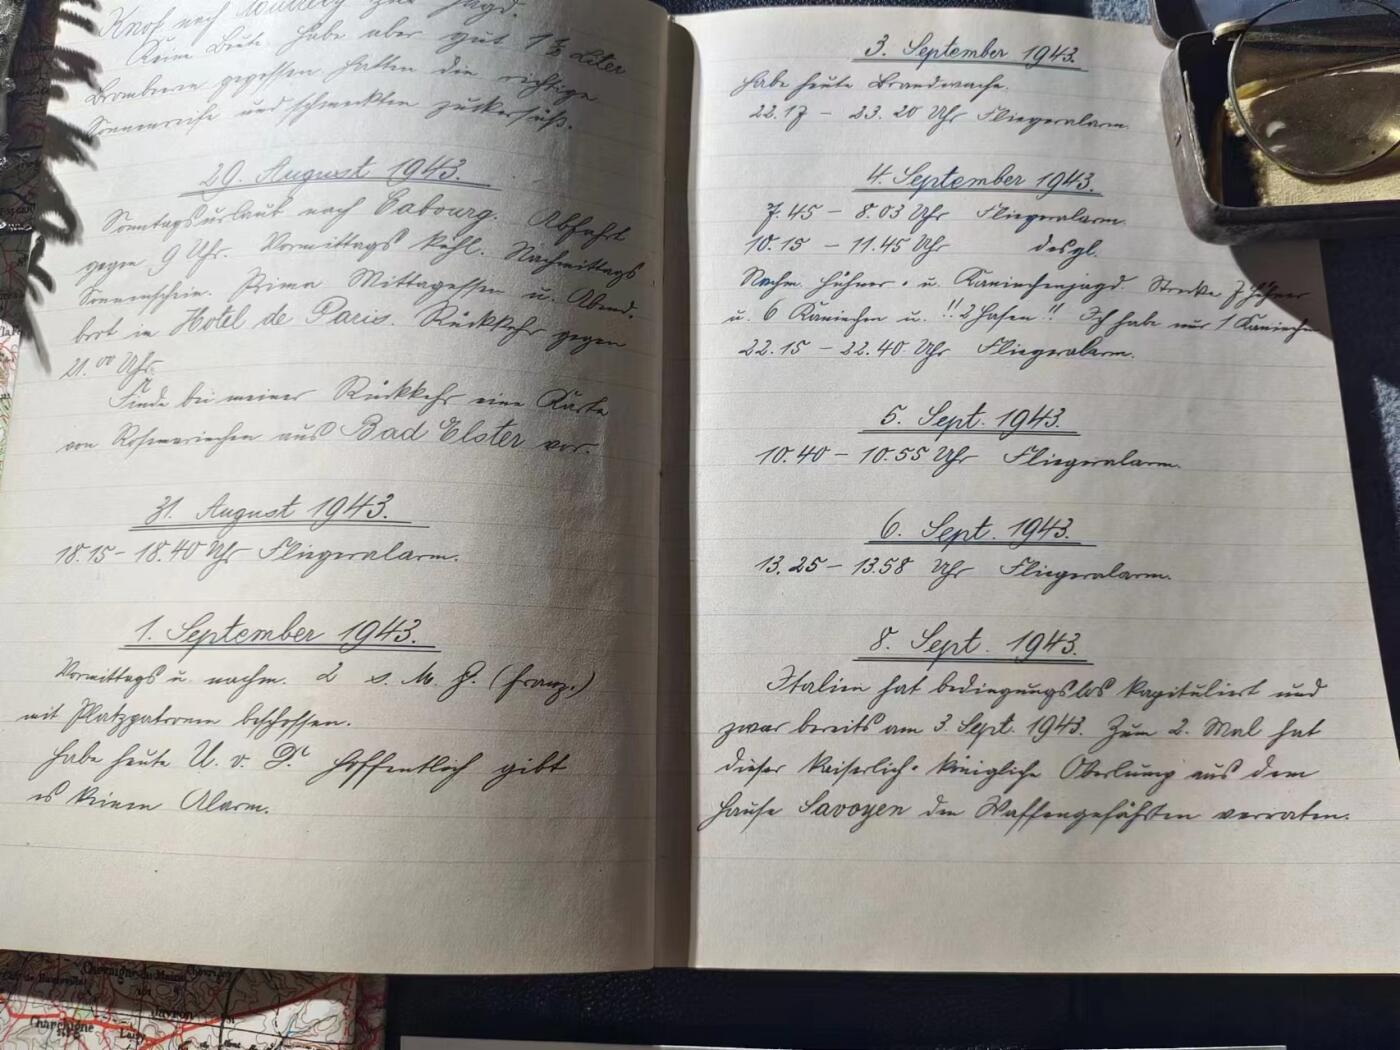 Knof nach zur Jagd.
Keine Beute. Habe aber gut 1½ Liter
Brombeeren gegessen. Hatten die richtige
Sonnenreife und schmeckten zuckersüß.
29. August 1943.
Sonntagsurlaub nach Cabourg. Abfahrt
gegen 9 Uhr. Vormittags kühl. Nachmittags
Sonnenschein. Prima Mittagessen u. Abend-
brot in Hotel de Paris. Rückkehr gegen
21.00 Uhr.
Finde bei meiner Rückkehr eine Karte
von Rosemariechen aus Bad Elster vor.
31. August 1943.
18.15 – 18.40 Uhr Fliegeralarm.
1. September 1943.
Vormittags u. nachm. 2 s. M. G. (franz.)
mit Platzpatronen beschossen.
Habe heute U. v. D. Hoffentlich gibt
es keinen Alarm.
3. September 1943.
Habe heute Brandwache.
22.17 – 23.20 Uhr Fliegeralarm.
4. September 1943.
7.45 – 8.03 Uhr Fliegeralarm.
10.15 – 11.45 Uhr desgl.
Nachm. Hühner- u. Kaninchenjagd. Strecke 7 Hühner
u. 6 Kaninchen u. !! 2 Hasen !! Ich habe nur 1 Kaninchen
22.15 – 22.40 Uhr Fliegeralarm.
5. Sept. 1943.
10.40 – 10.55 Uhr Fliegeralarm.
6. Sept. 1943.
13.25 – 13.58 Uhr Fliegeralarm.
8. Sept. 1943.
Italien hat bedingungslos kapituliert und
zwar bereits am 3. Sept. 1943. Zum 2. Mal hat
dieser kaiserlich-königliche Oberlump aus dem
Hause Savoyen den Waffengefährten verraten.
Charchigne
Javron